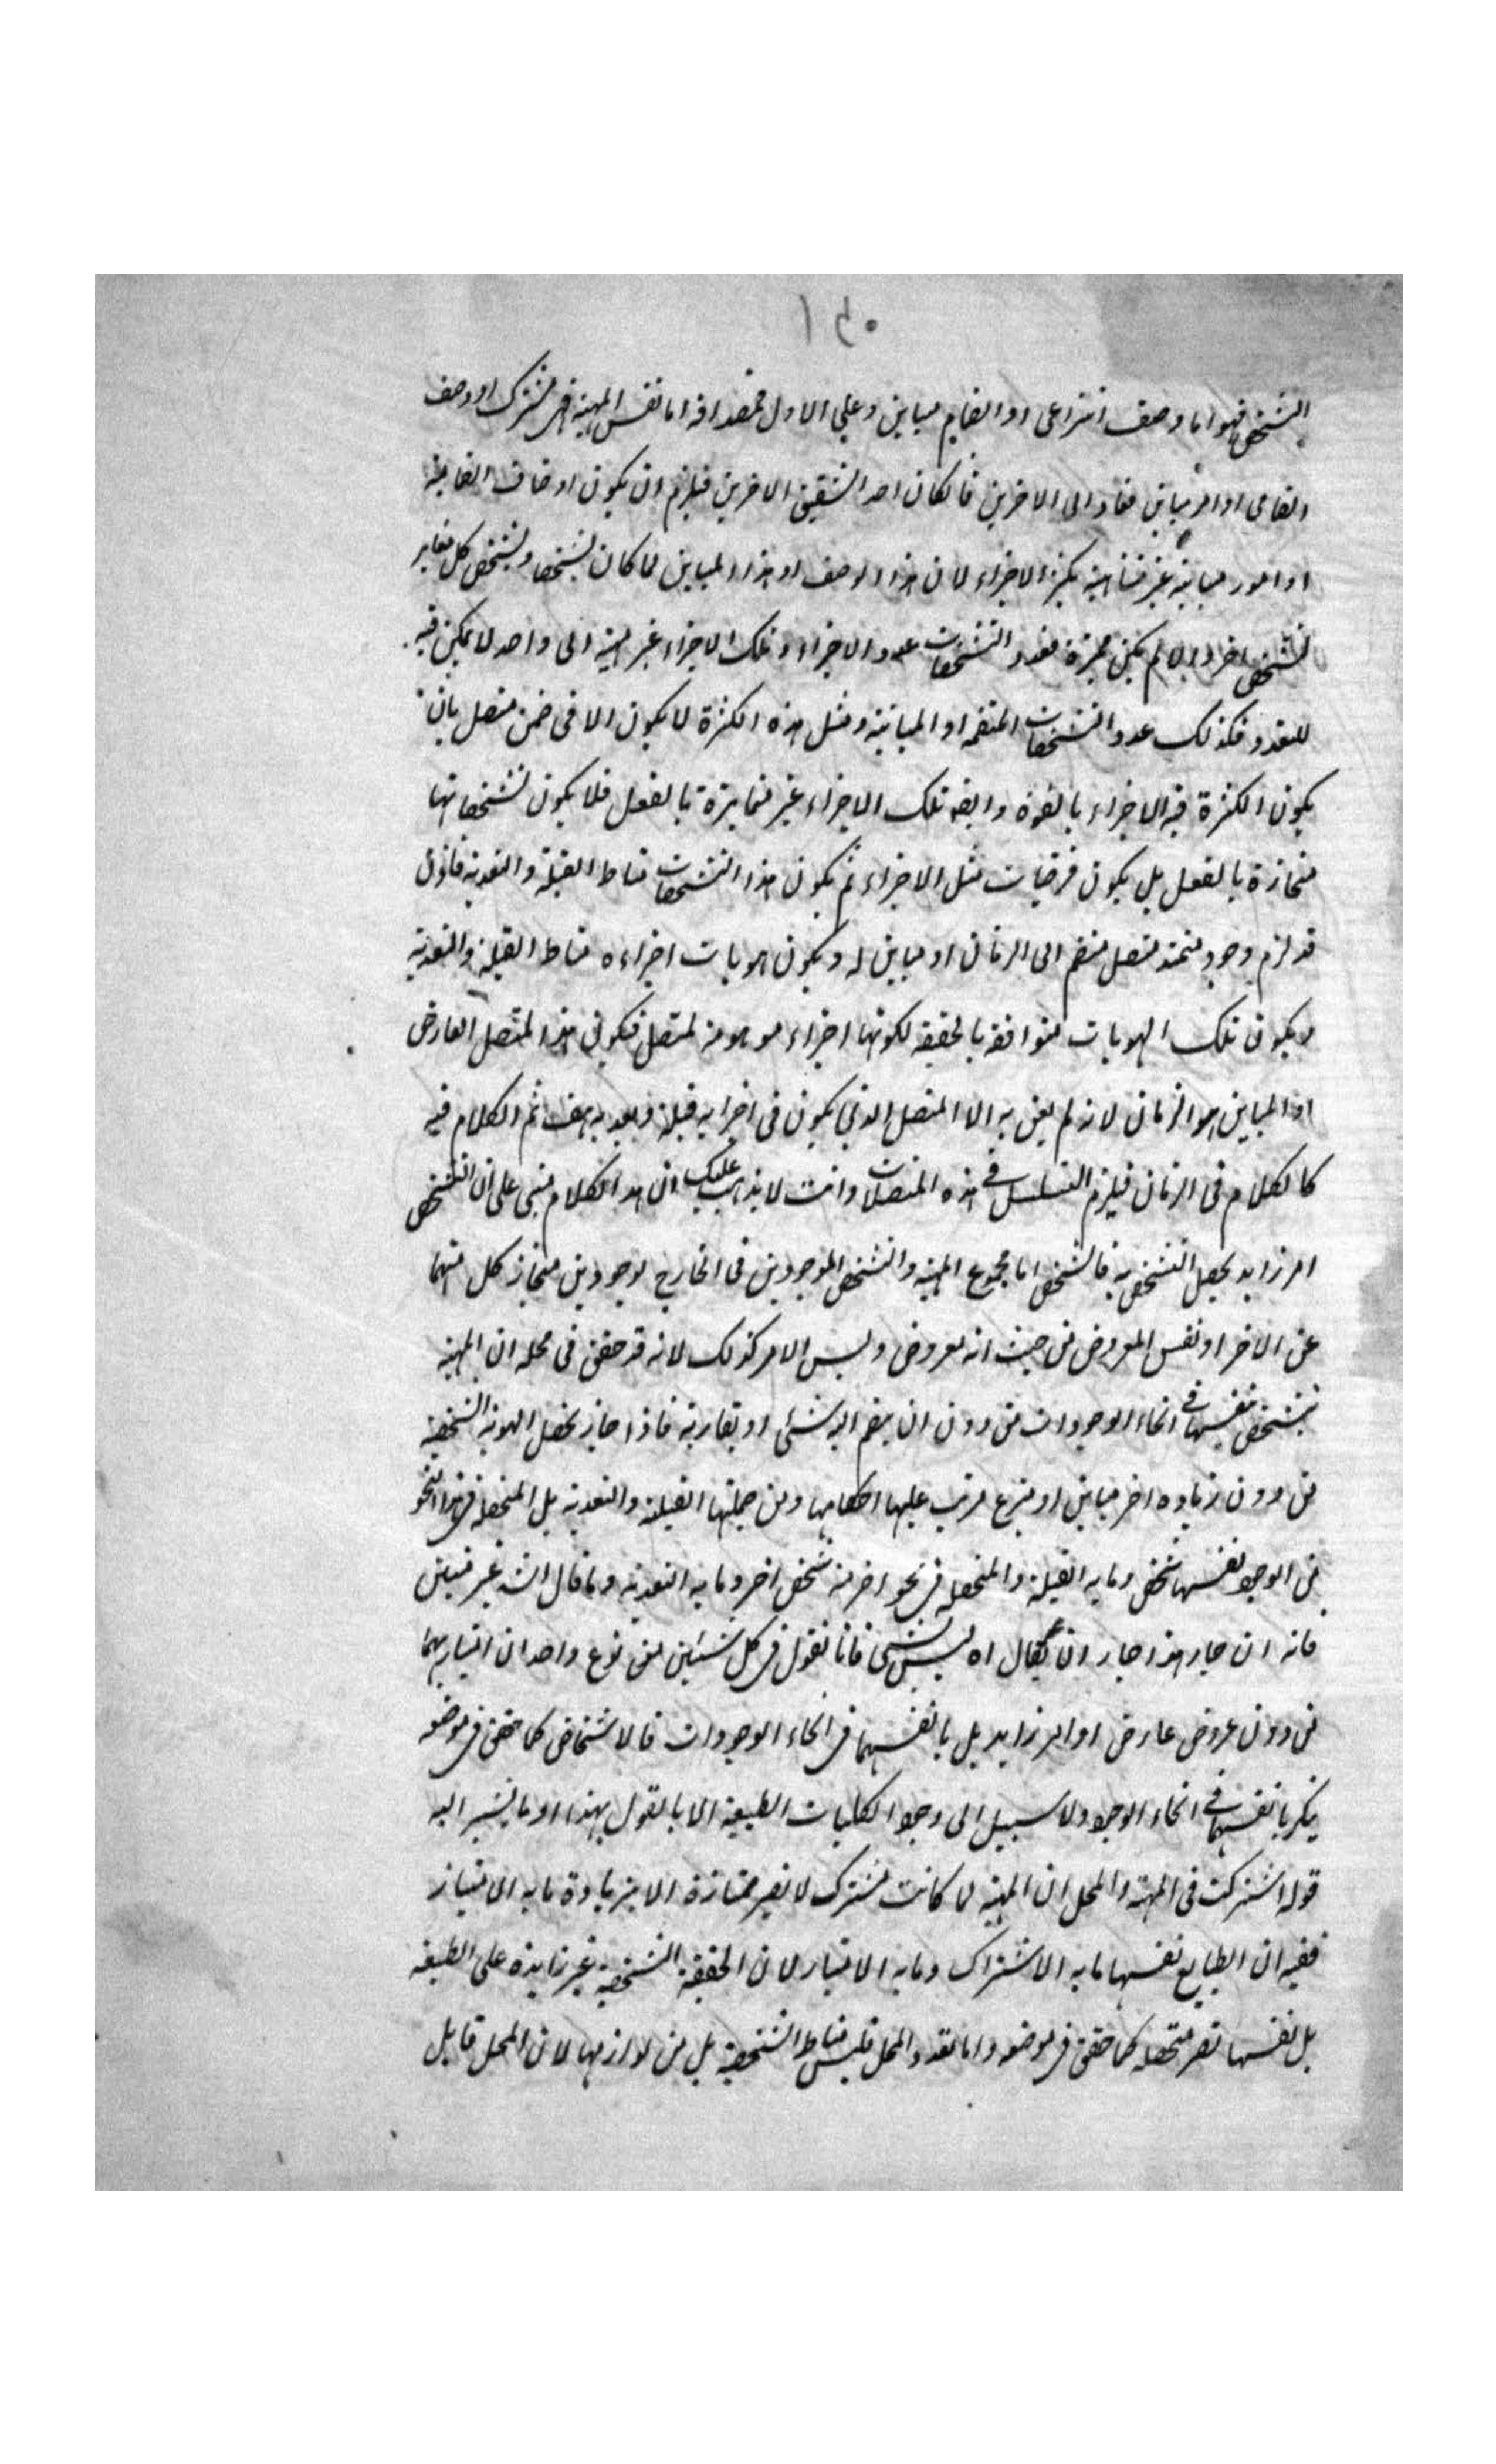 ١٤٠
التشخص فهو اما وصف انتزاعى او انضام مباين وعلى الاول فمصداقه اما نفس المهية فهى مشترك او وصف
انضامى او امر مباين فعاد الى الاخرين فان كان احد الشقين الاخرين فيلزم ان يكون اوصاف انضامية
او امور مباينة غير متناهية بكثرة الاجزاء لان هذا الوصف او هذا المباين لما كان تشخصا وتشخص كل مغاير
لتشخص اخر والا لم يكن مميزة فعدد التشخصات عدد الاجزاء وتلك الاجزاء غير منتهية الى واحد لا يمكن فيه
التعدد فكذلك عدد التشخصات المنضمة او المباينة ومثل هذه الكثرة لا يكون الا فى ضمن متصل بان
يكون الكثرة فيه الاجزاء بالقوة وايضه تلك الاجزاء غير متمايزة بالفعل فلا يكون تشخصاتها
منحازة بالفعل بل يكون فرضيات مثل الاجزاء ثم يكون هذا التشخصات مناط القبلية والبعدية فاذن
قد لزم وجود متصل منضم الى الزمان او مباين له ويكون هويات اجزاءه مناط القبلية والبعدية
ويكون تلك الهويات متوافقة بالحقيقة لكونها اجزاء موهومة لمتصل فيكون هذا المتصل العارض
او المباين هو الزمان لانه لم يعن به الا المتصل الذي يكون فى اجزايه قبلية وبعدية هف ثم الكلام فيه
كالكلام فى الزمان فيلزم التسلسل فى هذه المتصلات وانت لا يذهب عليك ان هذا الكلام مبنى على ان التشخص
امر زايد يحصل التشخص به فالشخص اما مجموع المهية والتشخص الموجودين فى الخارج بوجودين منحاز كل منهما
عن الاخر او نفس المعروض من حيث انه معروض وليس الامر كذلك لانه قد حقق فى محله ان المهية
تتشخص بنفسها فى انحاء الوجودات من دون ان ينضم اليه شئ او يقارنه فاذا جاز تحصل الهوية الشخصية
من دون زيادة اخر مباين او منتزع ترتب عليها احكامها ومن جملتها القبلية والبعدية بل المتحصلة فى هذا النحو
من الوجود نفسها شخص وما به القبلية والمتحصلة فى نحو اخر منه شخص اخر وما به البعدية وما قال الش غير متين
فانه ان جاز هذا جاز ان يقال اه ليس بشئ فانا نقول فى كل شيئين من نوع واحد ان امتيازهما
من دون عروض عارض او امر زايد بل بانفسهما فى انحاء الوجودات فالاشخاص كما حقق فى موضعه
يتكثر بانفسها فى انحاء الوجود ولا سبيل الى وجود الكليات الطبيعية الا بالقول بهذا او ما يشير اليه
قوله اشتركت فى المهية والمحل ان المهية لما كانت مشترك لا تصير ممتازة الا بزيادة ما به الامتياز
ففيه ان الطبايع نفسها ما به الاشتراك وما به الامتياز لان الحقيقة الشخصية غير زايدة على الطبيعة
بل نفسها تصير متحصلة كما حقق فى موضعه واما تعدد المحل فليس مناط الشخصية بل من لوازمها لان المحل قابل